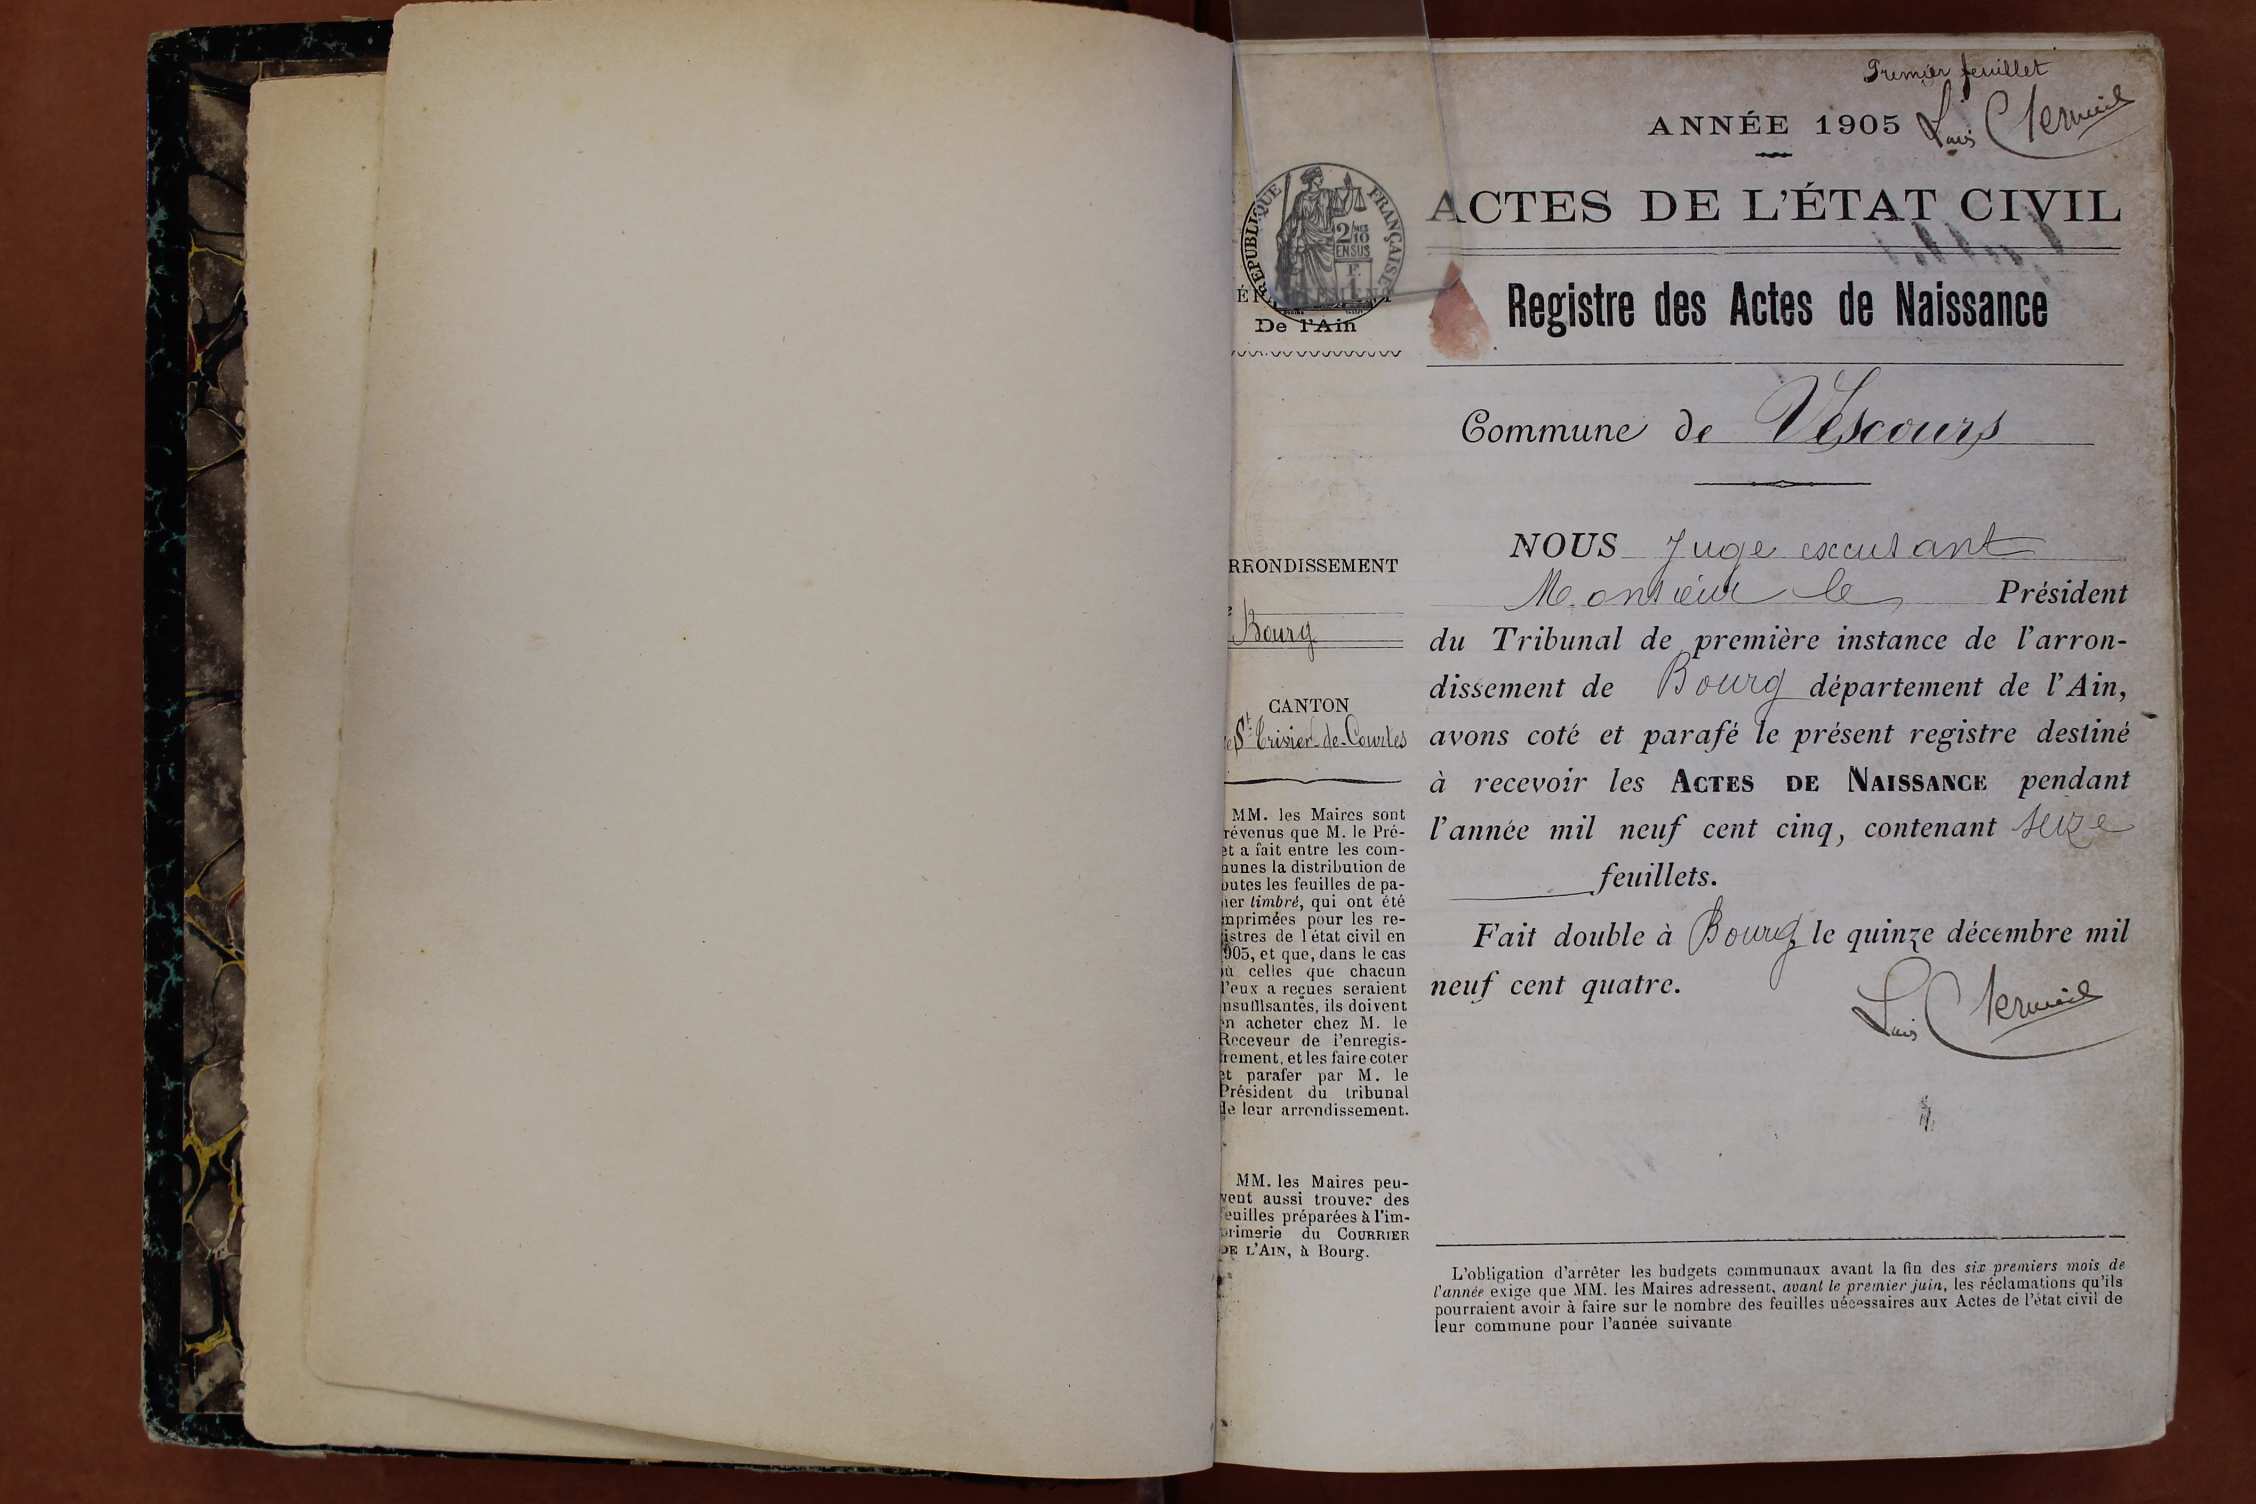 Premier feuillet
ANNÉE 1905
Louis
ACTES DE L'ÉTAT CIVIL
RÉPUBLIQUE FRANÇAISE
2/10
EN SUS
De l'Ain
Registre des Actes de Naissance
Commune de Vescours
RRONDISSEMENT
Bourg
CANTON
St Trivier-de-Courtes
MM. les Maires sont
révenus que M. le Pré-
et a fait entre les com-
unes la distribution de
outes les feuilles de pa-
ier timbré, qui ont été
mprimées pour les re-
istres de l'état civil en
905, et que, dans le cas
ù celles que chacun
d'eux a reçues seraient
nsuffisantes, ils doivent
en acheter chez M. le
Receveur de l'enregis-
rement, et les faire coter
et parafer par M. le
Président du tribunal
de leur arrondissement.
MM. les Maires peu-
vent aussi trouver des
feuilles préparées à l'im-
primerie du COURRIER
DE L'AIN, à Bourg.
NOUS Juge excusant
Monsieur le Président
du Tribunal de première instance de l'arron-
dissement de Bourg département de l'Ain,
avons coté et parafé le présent registre destiné
à recevoir les ACTES DE NAISSANCE pendant
l'année mil neuf cent cinq, contenant seize
feuillets.
Fait double à Bourg, le quinze décembre mil
neuf cent quatre.
Louis
L'obligation d'arrêter les budgets communaux avant la fin des six premiers mois de
l'année exige que MM. les Maires adressent, avant le premier juin, les réclamations qu'ils
pourraient avoir à faire sur le nombre des feuilles nécessaires aux Actes de l'état civil de
leur commune pour l'année suivante